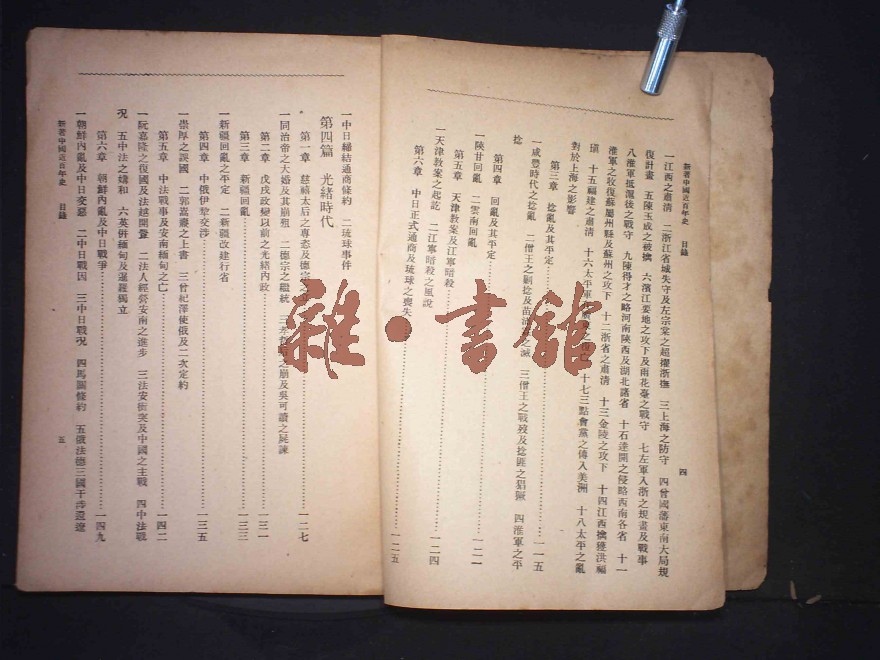 新著中國近百年史 目錄 四
一江西之肅清 二浙江省城失守及左宗棠之超擢浙撫 三上海之防守 四曾國藩東南大局規
復計畫 五陳玉成之被擒 六濱江要地之攻下及雨花臺之戰守 七左軍入浙之規畫及戰事
八淮軍抵滬後之戰守 九陳得才之略河南陝西及湖北諸省 十石達開之侵略西南各省 十一
淮軍之收復蘇屬州縣及蘇州之攻下 十二浙省之肅清 十三金陵之攻下 十四江西擒獲洪福
瑱 十五福建之肅清 十六太平軍 十七三點會黨之傳入美洲 十八太平之亂
對於上海之影響
第三章 捻亂及其平定 一一五
一咸豐時代之捻亂 二僧王之剿捻及苗 滅 三僧王之戰歿及捻匪之猖獗 四淮軍之平
捻
第四章 回亂及其平定 一二一
一陝甘回亂 二雲南回亂
第五章 天津教案及江寧暗殺 一二四
一天津教案之起訖 二江寧暗殺之風說
第六章 中日正式通商及琉球之喪失 一二五
一中日締結通商條約 二琉球事件
第四篇 光緒時代
第一章 慈禧太后之專恣及德宗之 一二七
一同治帝之大婚及其崩殂 二德宗之繼統 三孝 之崩及吳可讀之屍諫
第二章 戊戌政變以前之光緒內政 一三一
第三章 新疆回亂 一三三
一新疆回亂之平定 二新疆改建行省
第四章 中俄伊犂交涉 一三五
一崇厚之誤國 二郭嵩燾之上書 三曾紀澤使俄及二次定約
第五章 中法戰事及安南緬甸之亡 一四二
一阮嘉隆之復國及法越開釁 二法人經營安南之進步 三法安衝突及中國之主戰 四中法戰
況 五中法之媾和 六英併緬甸及暹羅獨立
第六章 朝鮮內亂及中日戰爭 一四九
一朝鮮內亂及中日交惡 二中日戰因 三中日戰況 四馬關條約 五俄法德三國干涉還遼
新著中國近百年史 目錄 五
雜·書館